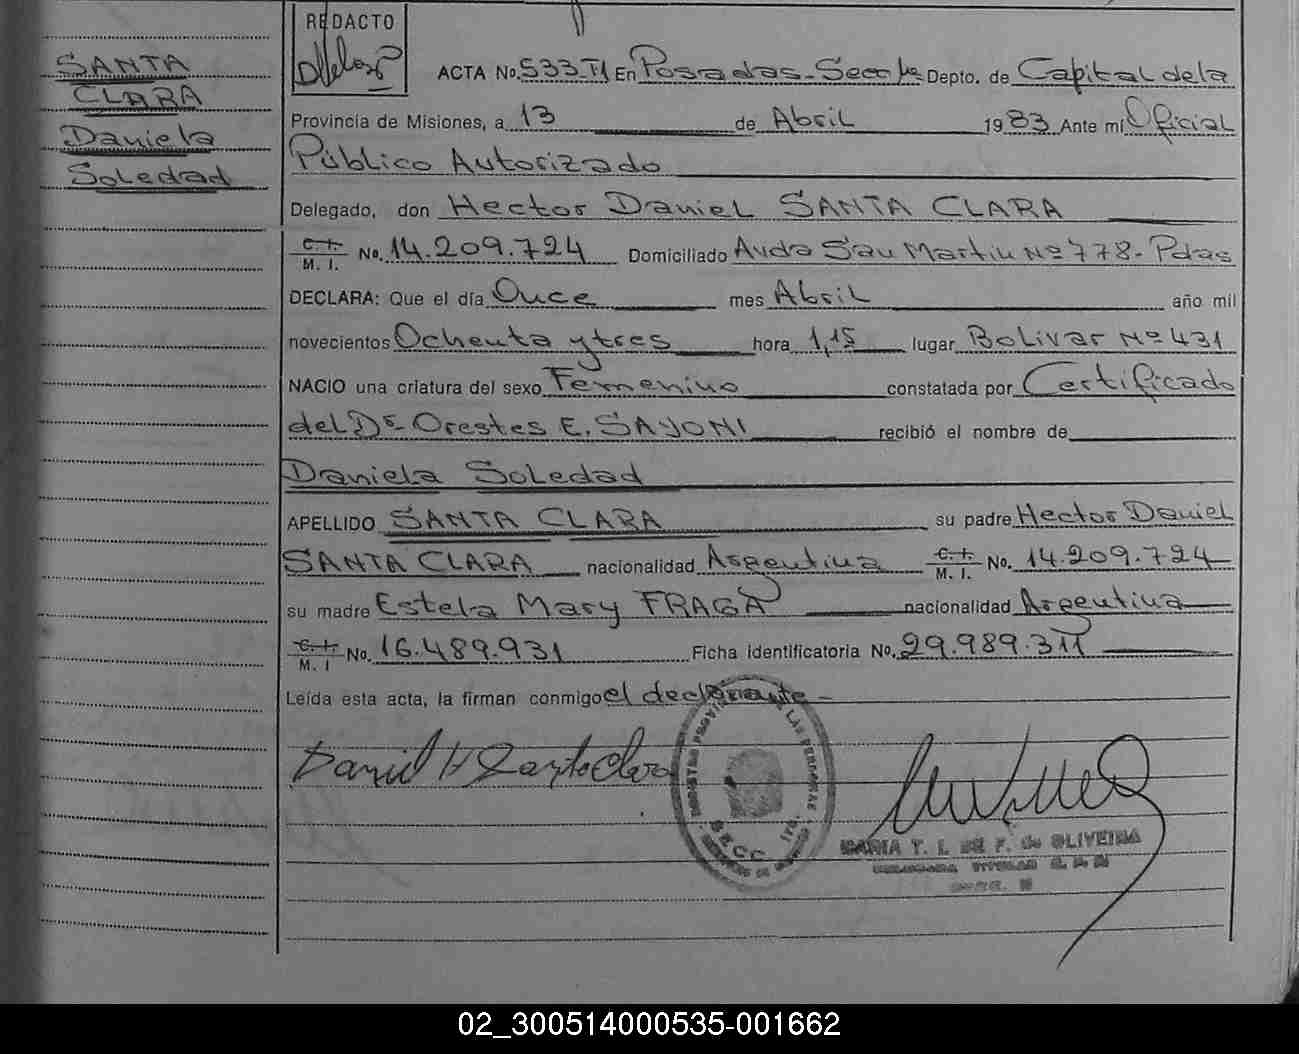 SANTA
CLARA
Daniela
Soledad
REDACTO
ACTA No. 533-T1 En Posadas-Secc 1a Depto. de Capital de la
Provincia de Misiones, a 13 de Abril 1983 Ante mí Oficial
Público Autorizado
Delegado, don Hector Daniel SANTA CLARA
C.I. M. I. No. 14.209.724 Domiciliado Avda San Martin Nº 778- Pdas
DECLARA: Que el día Once mes Abril año mil
novecientos Ochenta y tres hora 1,15 lugar Bolivar Nº 431
NACIO una criatura del sexo Femenino constatada por Certificado
del Dr Orestes E. SAYONI recibió el nombre de
Daniela Soledad
APELLIDO SANTA CLARA su padre Hector Daniel
SANTA CLARA nacionalidad Argentina C.I. M. I. No. 14.209.724
su madre Estela Mary FRAGA nacionalidad Argentina
C.I. M. I No. 16.489.931 Ficha identificatoria No. 29.989.311
Leída esta acta, la firman conmigo el declarante-
Daniel H Santa Clara
REGISTRO PROVINCIAL DE LAS PERSONAS
SECC. 1ra.
MARIA T. I. DE F. de OLIVEIRA
TITULAR
02_300514000535-001662